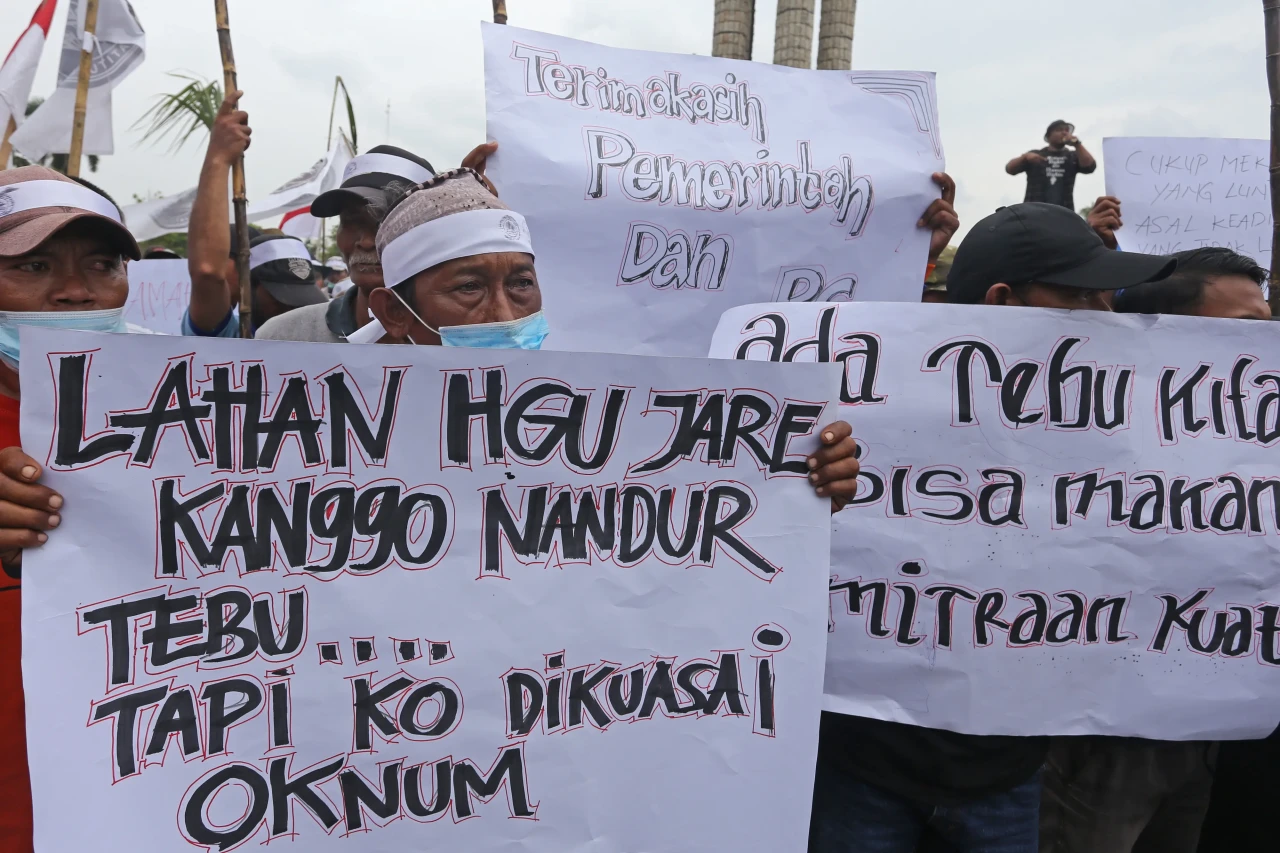 Terimakasih
Pemerintah
Dan
CUKUP
YANG
ASAL
YANG
LAHAN HGU JARE
KANGGO NANDUR
TEBU....
TAPI KO DIKUASAI
OKNUM
ada Tebu Kita
Bisa makan
Kuat